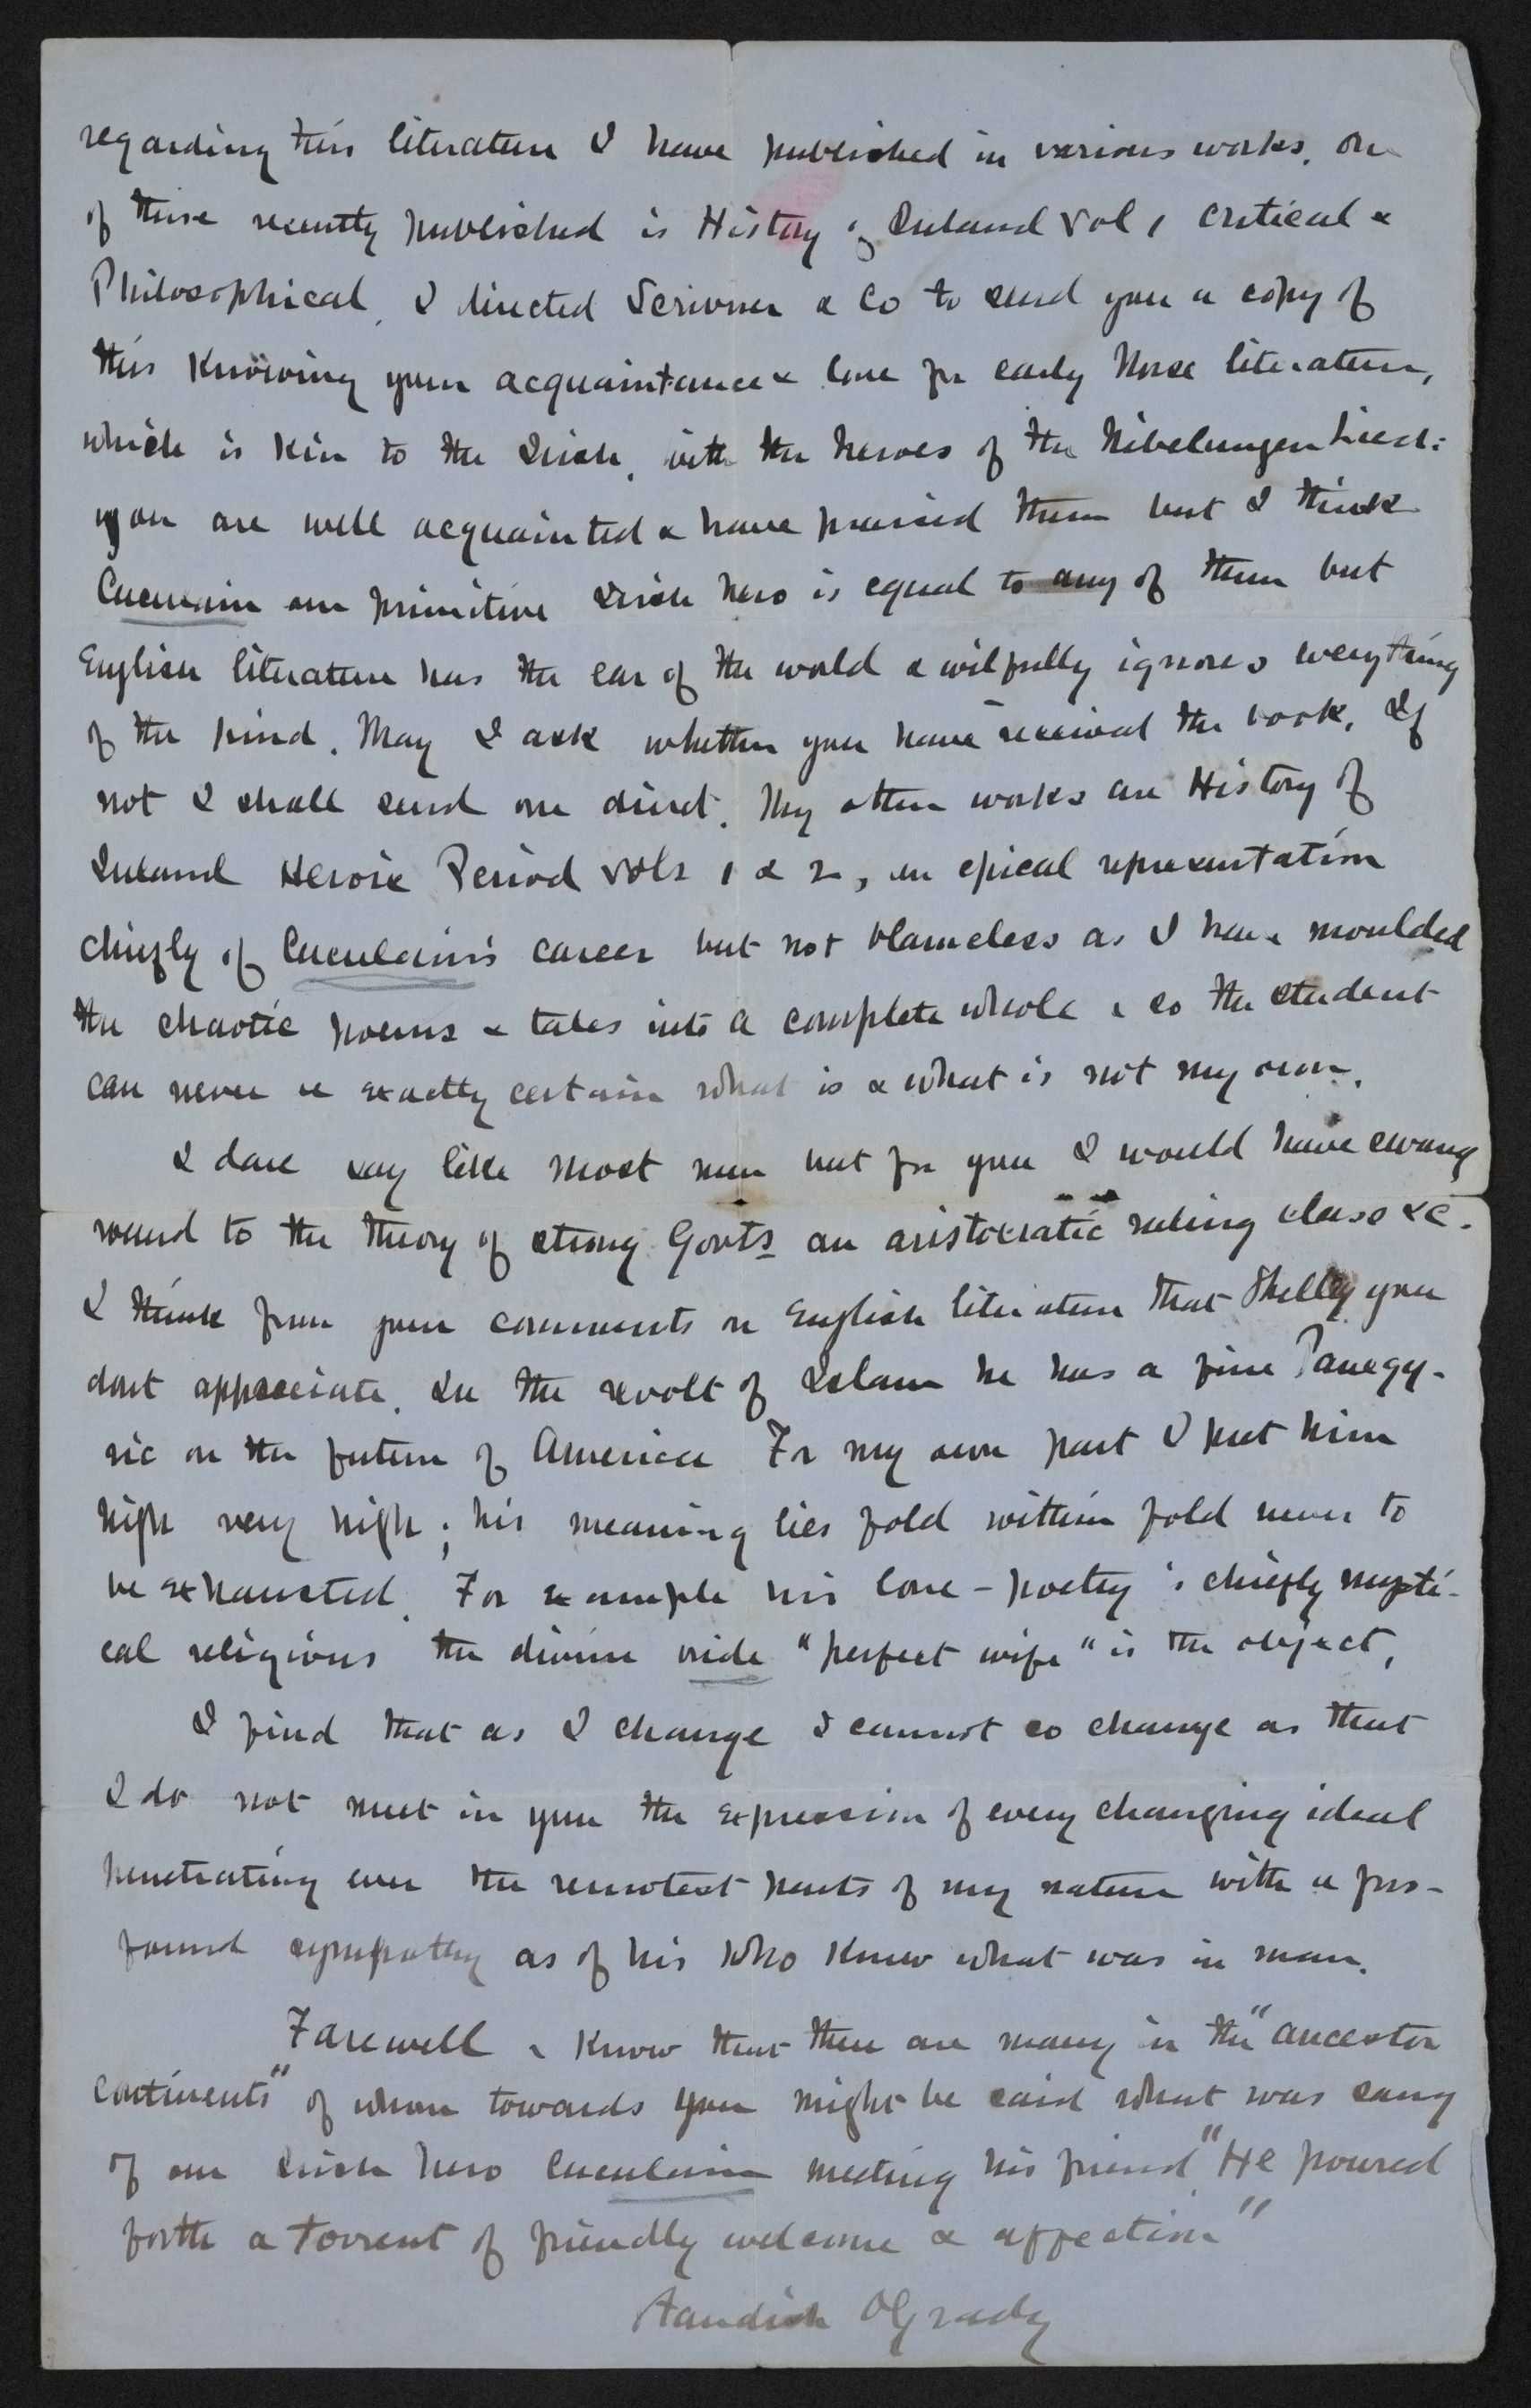 regarding this literature I have published in various works. one
of these recently published is History of Ireland Vol 1 Critical &
Philosophical, I directed Scrivner & Co to send you a copy of
this Knowing your acquaintance & love for early Norse literature,
which is Kin to the Irish, with the heroes of the Nibelungen Lied:
you are well acquainted & have praised them but I think
Cuculain our primitive Irish hero is equal to any of them but
English literature has the ear of the world & wilfully ignores everything
of the kind. May I ask whether you have received the book. If
not I shall send one direct. My other works are History of
Ireland Heroic Period vols 1 & 2, an epical representation
chiefly of Cuculain's career but not blameless as I have moulded
the chaotic poems & tales into a complete whole & so the student
can never be exactly certain what is & what is not my own.
I dare say like most men but for you I would have swung
round to the theory of strong Govts an aristocratic ruling class &c.
I think from your comments on English literature that Shelley you
dont appreciate. In the revolt of Islam he has a fine Panegy-
ric on the future of America For my own part I put him
high very high; his meaning lies fold within fold never to
be exhausted. For example his love-poetry is chiefly mysti-
cal religious the divine bride "perfect wife" is the object,
I find that as I change I cannot so change as that
I do not meet in you the expression of every changing ideal
penetrating even the remotest parts of my nature with a pro-
found sympathy as of his who knew what was in man.
Farewell & know that there are many in the "ancestor
continents" of whom towards you might be said what was sang
of our Irish hero Cuculain meeting his friend "He poured
forth a torrent of friendly welcome & affection"
Standish OGrady